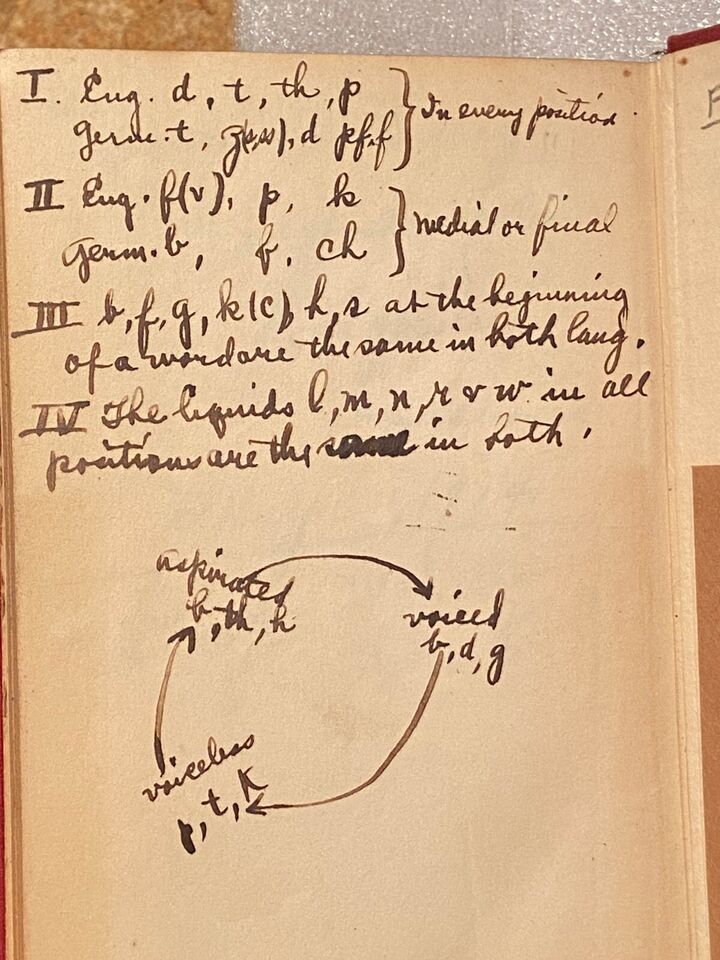 I. Eng. d, t, th, p } In every position.
Germ. t, z(s,ss), d pf, f
II Eng. f(v), p, k } Medial or final
Germ. b, f, ch
III b, f, g, k(c), h, s at the beginning
of a word are the same in both lang.
IV The liquids l, m, n, r & w in all
positions are the same in both.
aspirated
f, th, h
voiced
b, d, g
voiceless
p, t, k